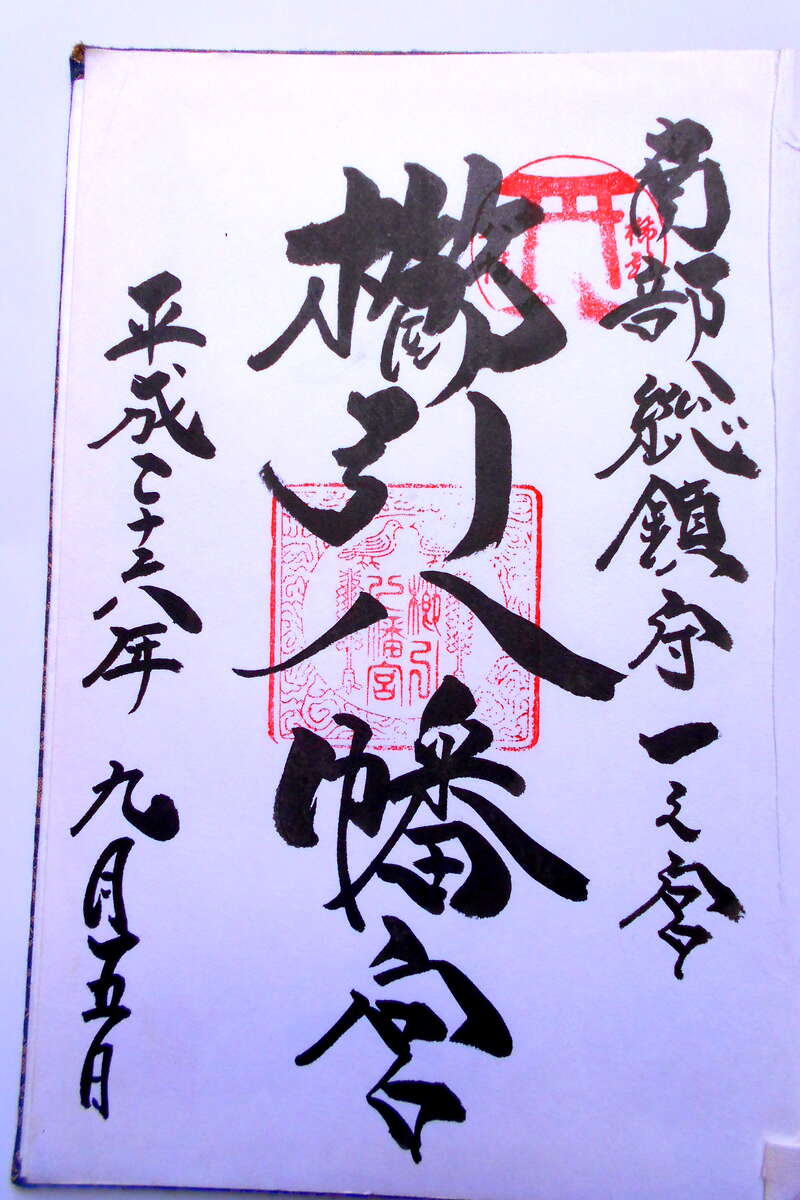 南部総鎮守一之宮
櫛引八幡宮
平成二十六年九月五日
櫛引
八幡宮